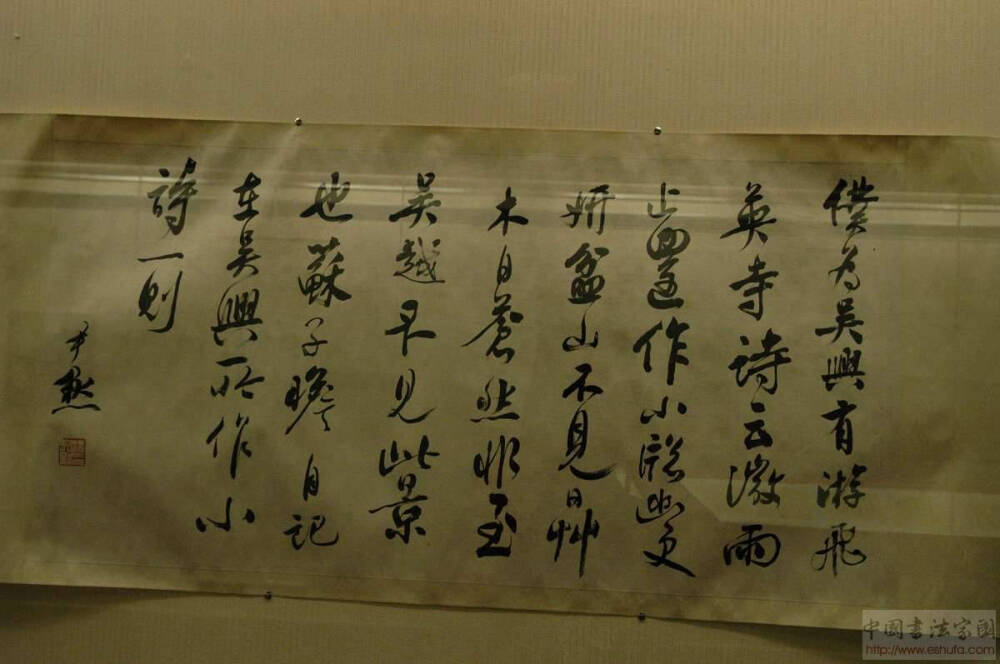 僕为吴興有游飛
英寺詩云微雨
止還作小窓幽更
妍盆山不見日艸
木自蒼然非至
吴越不見此景
也蘇子瞻自記
在吴興所作小
詩一則
尹默
中國書法家園
http://www.eshufa.com